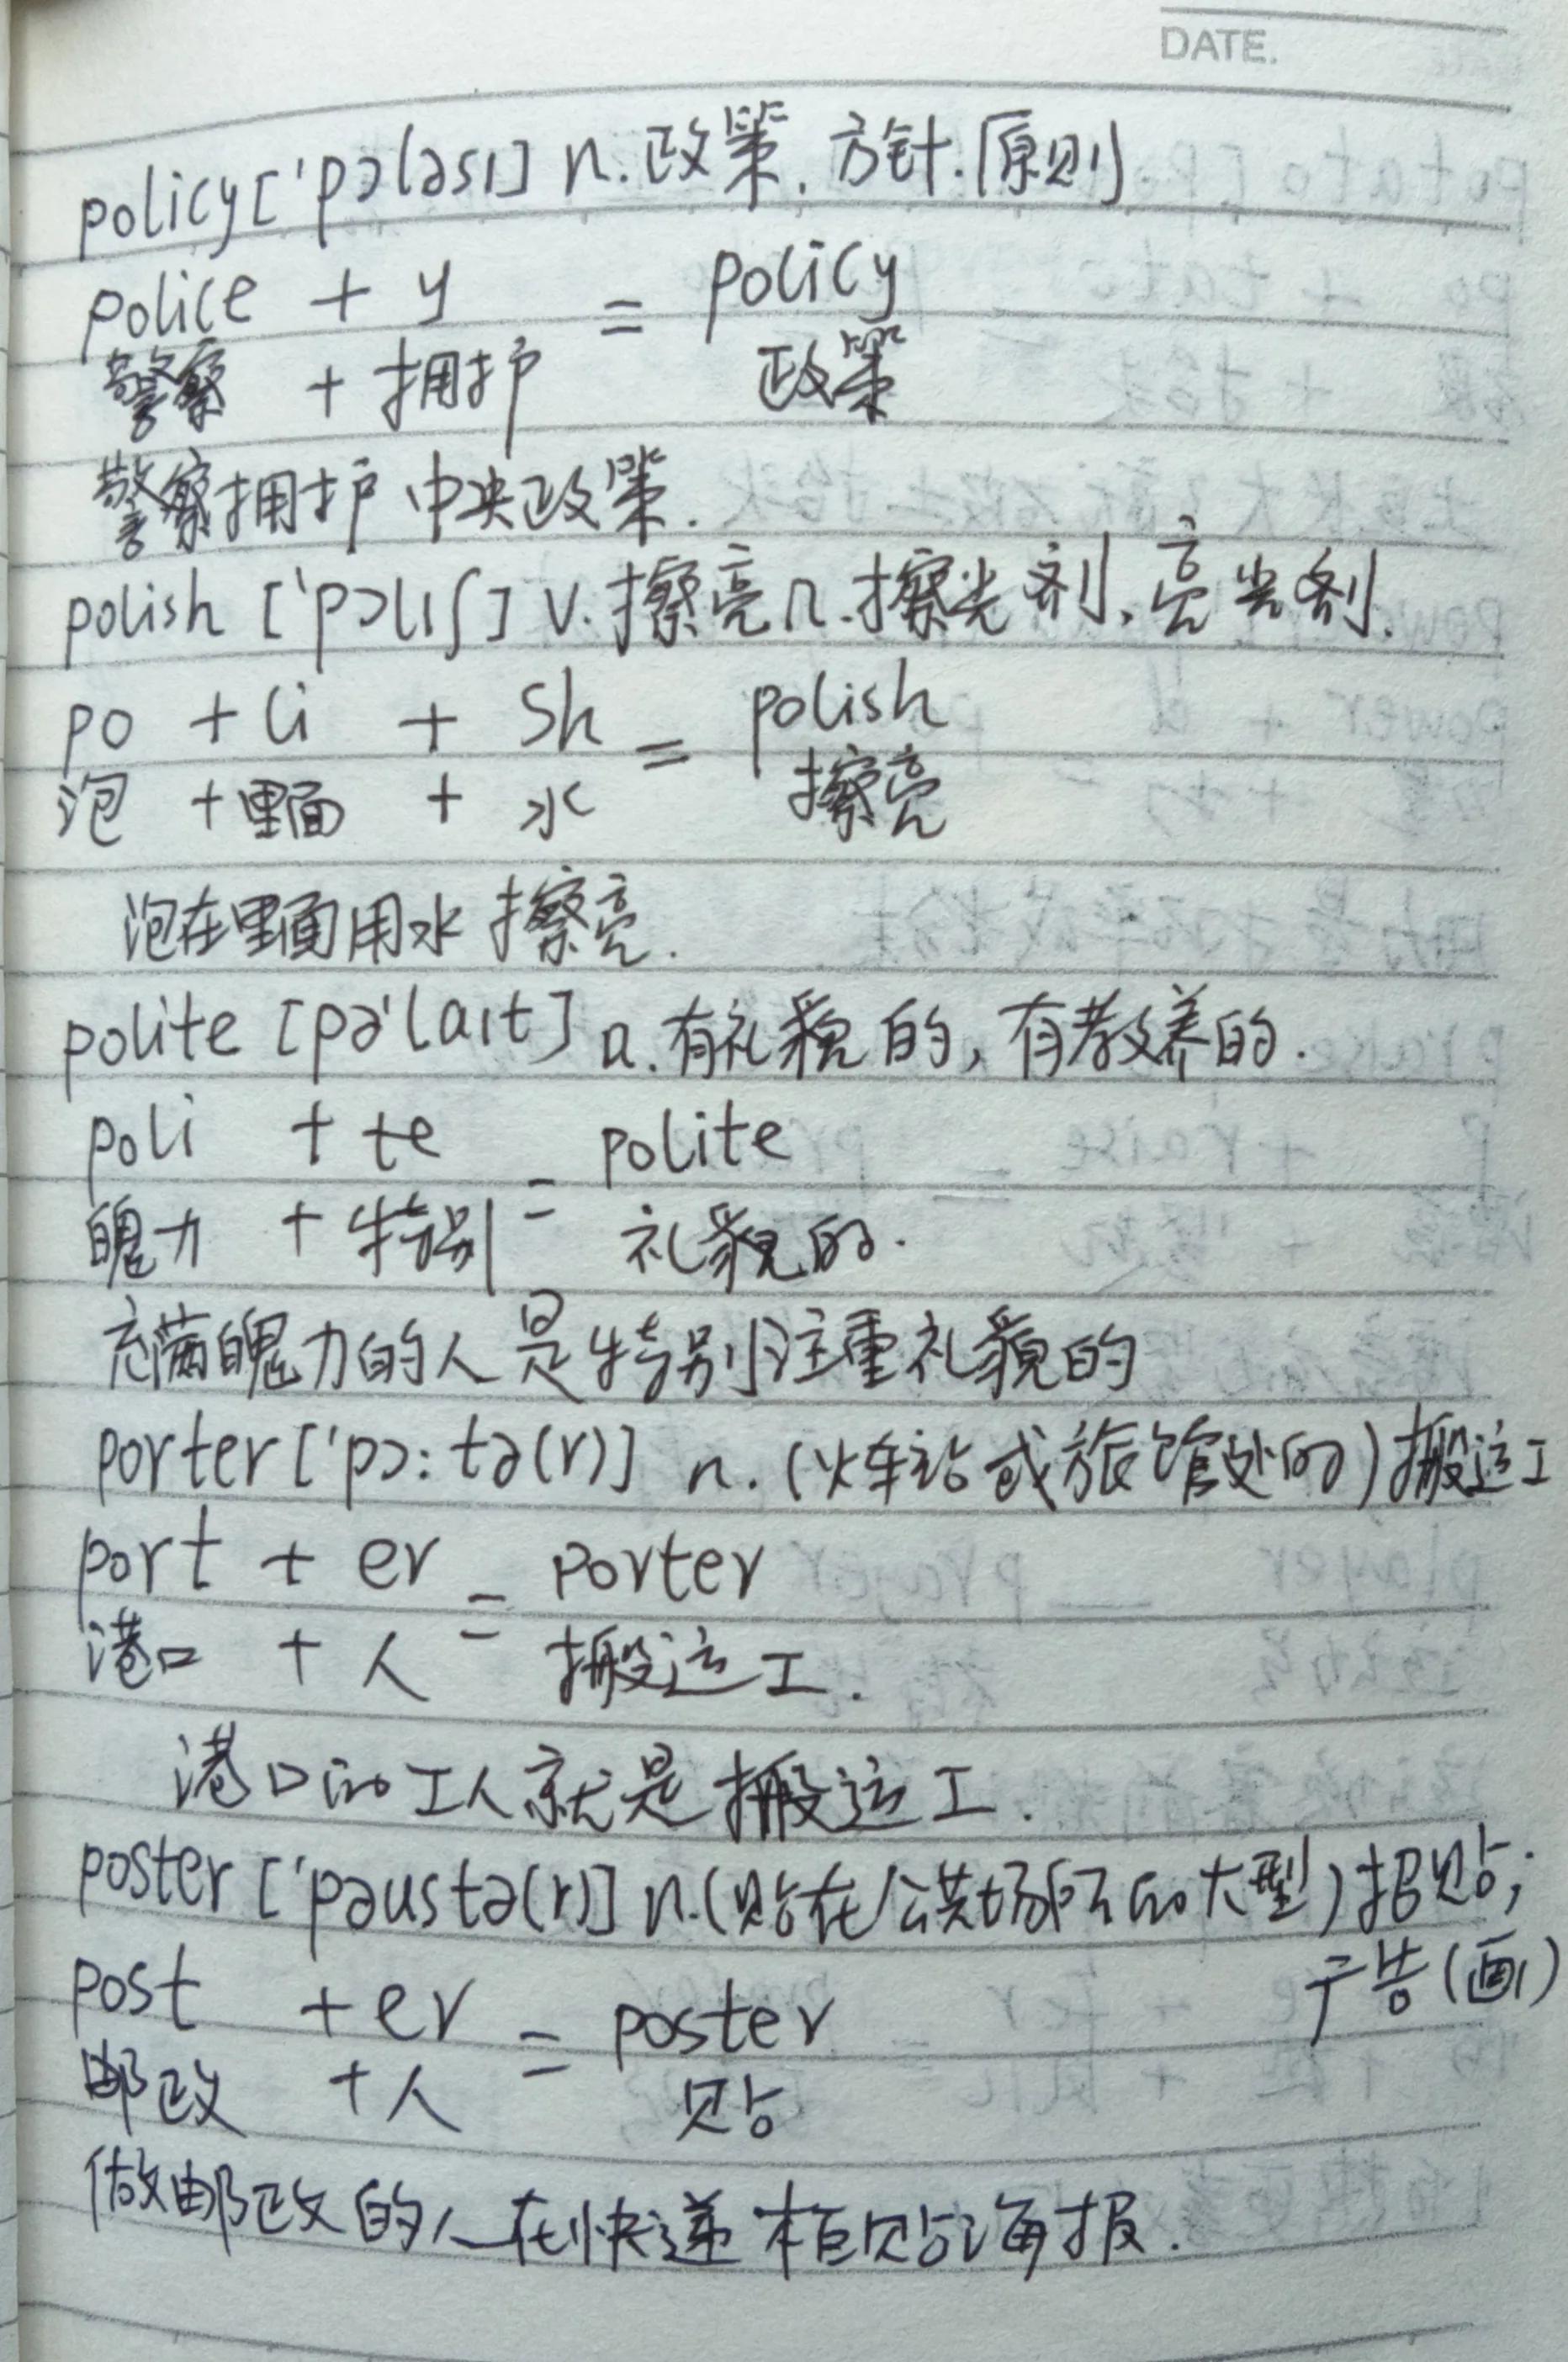 DATE.
policy ['pɔləsɪ] n. 政策. 方针. 原则
police + y = policy
警察 + 拥护 政策
警察拥护中央政策.
polish ['pɔlɪʃ] v. 擦亮 n. 擦光剂. 亮光剂.
po + li + sh = polish
泡 + 里面 + 水 擦亮
泡在里面用水擦亮.
polite [pə'laɪt] a. 有礼貌的, 有教养的.
poli + te = polite
魄力 + 特别 礼貌的.
充满魄力的人是特别注重礼貌的
porter ['pɔ:tə(r)] n. (火车站或旅馆处的) 搬运工
port + er = porter
港口 + 人 搬运工.
港口的工人就是搬运工.
poster ['pəustə(r)] n. (贴在公共场所的大型) 招贴;
广告(画)
post + er = poster
邮政 + 人 贴
做邮政的人在快递柜贴海报.